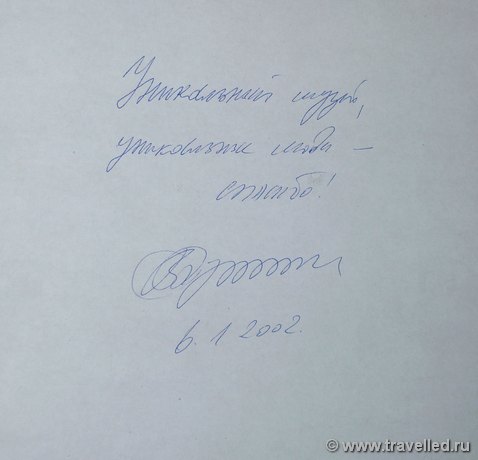 Уникальный музей,
уникальные люди —
спасибо!
6. 1 2002.
© www.travelled.ru